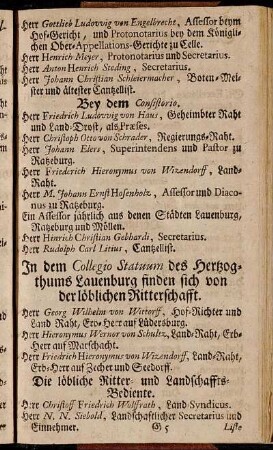 Herr Gottlieb Ludovvig von Engelbrecht, Assessor beym
Hof-Gericht, und Protonotarius bey dem Königli-
chen Ober-Appellations-Gerichte zu Celle.
Herr Henrich Meyer, Protonotarius und Secretarius.
Herr Anton Henrich Steding, Secretarius.
Herr Johann Christian Schleiermacher, Boten-Mei-
ster und ältester Cantzellist.
Bey dem Consistorio.
Herr Friedrich Ludovvig von Haus, Geheimbter Raht
und Land-Drost, als Præses.
Herr Christoph Otto von Schrader, Regierungs-Raht.
Herr Johann Eders, Superintendens und Pastor zu
Ratzeburg.
Herr Friedrich Hieronymus von Wizendorff, Land-
Raht.
Herr M. Johann Ernst Hosenholz, Assessor und Diaco-
nus zu Ratzeburg.
Ein Assessor jährlich aus denen Städten Lauenburg,
Ratzeburg und Möllen.
Herr Hinrich Christian Gebhardi, Secretarius.
Herr Rudolph Carl Litius, Cantzellist.
In dem Collegio Statuum des Hertzog-
thums Lauenburg finden sich von
der löblichen Ritterschafft.
Herr Georg Wilhelm von Wittorff, Hof-Richter und
Land Raht, Erb-Herr auf Lüdersburg.
Herr Hieronymus Wernor von Schultz, Land-Raht, Erb-
Herr auf Marschacht.
Herr Friedrich Hieronymus von Wizendorff, Land-Raht,
Erb-Herr auf Zecher und Seedorff.
Die löbliche Ritter- und Landschaffts-
Bediente.
Herr Christoff Friedrich Wolffrath, Land-Syndicus.
Herr N. N. Siebold, Landschafftlicher Secretarius und
Einnehmer.
G 5
Liste